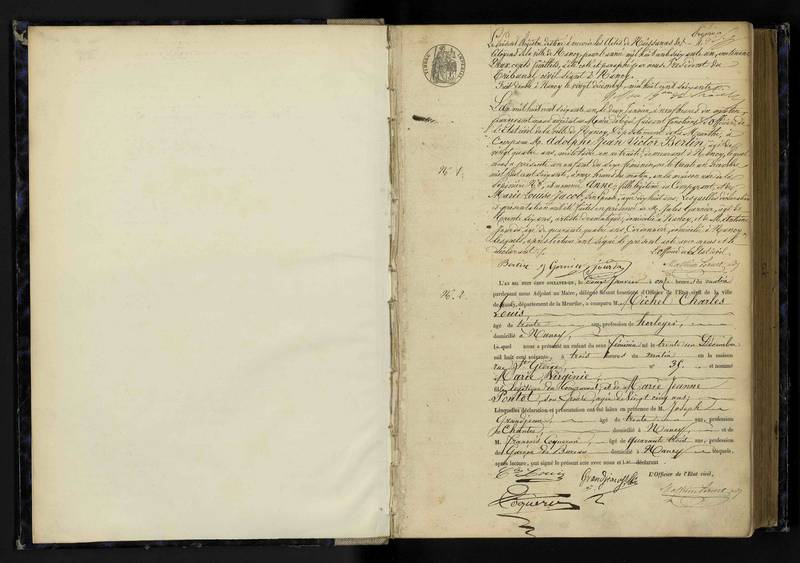 Le présent Registre destiné à inscrire les Actes de Naissances des
Citoyens de la ville de Nancy, pour l'année mil huit cent soixante un, contenant
Deux cents feuillets, a été coté et paraphé par nous Président du
Tribunal civil séant à Nancy.
Fait double à Nancy le vingt Décembre mil huit cent soixante
L'An mil huit cent soixante un, le deux Janvier, à neuf heures du matin
pardevant nous adjoint au Maire délégué faisant fonctions d'Officier de
l'Etat civil de la ville de Nancy, Département de la Meurthe, a
Comparu M. Adolphe Jean Victor Bertin, âgé de
vingt quatre ans, militaire en retraite, demeurant à Nancy, lequel
nous a présenté un enfant du sexe féminin, né le trente un Décembre
mil huit cent soixante, onze heures du matin, en la maison
N° 1.
et nommé Anne, fille légitime du Comparant, et de
Marie Louise Jacob, son épouse, âgée de ans, Lesquelles déclaration
et présentation ont été faites en présence de M. Jules Garnier, âgé de
trente six ans, artiste dramatique, domicilié à Nancy, et de M. Antoine
Jourdin, âgé de quarante quatre ans, Cordonnier, domicilié à Nancy
Lesquels, après lecture, ont signé le présent acte avec nous et le
déclarant. L'officier de l'Etat civil,
Bertin J Garnier Jourdin
N° 2.
L'AN MIL HUIT CENT SOIXANTE-UN, le deux Janvier à onze heures du matin
pardevant nous Adjoint au Maire, délégué faisant fonctions d'Officier de l'Etat civil de la ville
de Nancy, département de la Meurthe, a comparu M. Michel Charles
Louis,
âgé de trente ans, profession de horloger,
domicilié à Nancy,
Lequel nous a présenté un enfant du sexe féminin né le trente un Décembre
mil huit cent soixante, à trois heures du matin en la maison
rue St George, n° 35, et nommé
Marie Virginie,
fille légitime du Comparant, et de Marie Jeanne
Pontot, son Epouse, âgée de vingt cinq ans;
Lesquelles déclaration et présentation ont été faites en présence de M. Joseph
Grandjean, âgé de trente ans, profession
de Chantre, domicilié à Nancy, et de
M. François Coquerin, âgé de quarante trois ans, profession
de Garçon de Bureau domicilié à Nancy lesquels,
après lecture, ont signé le présent acte avec nous et le déclarant
L'Officier de l'Etat civil,
Louis Grandjean
Coquerin